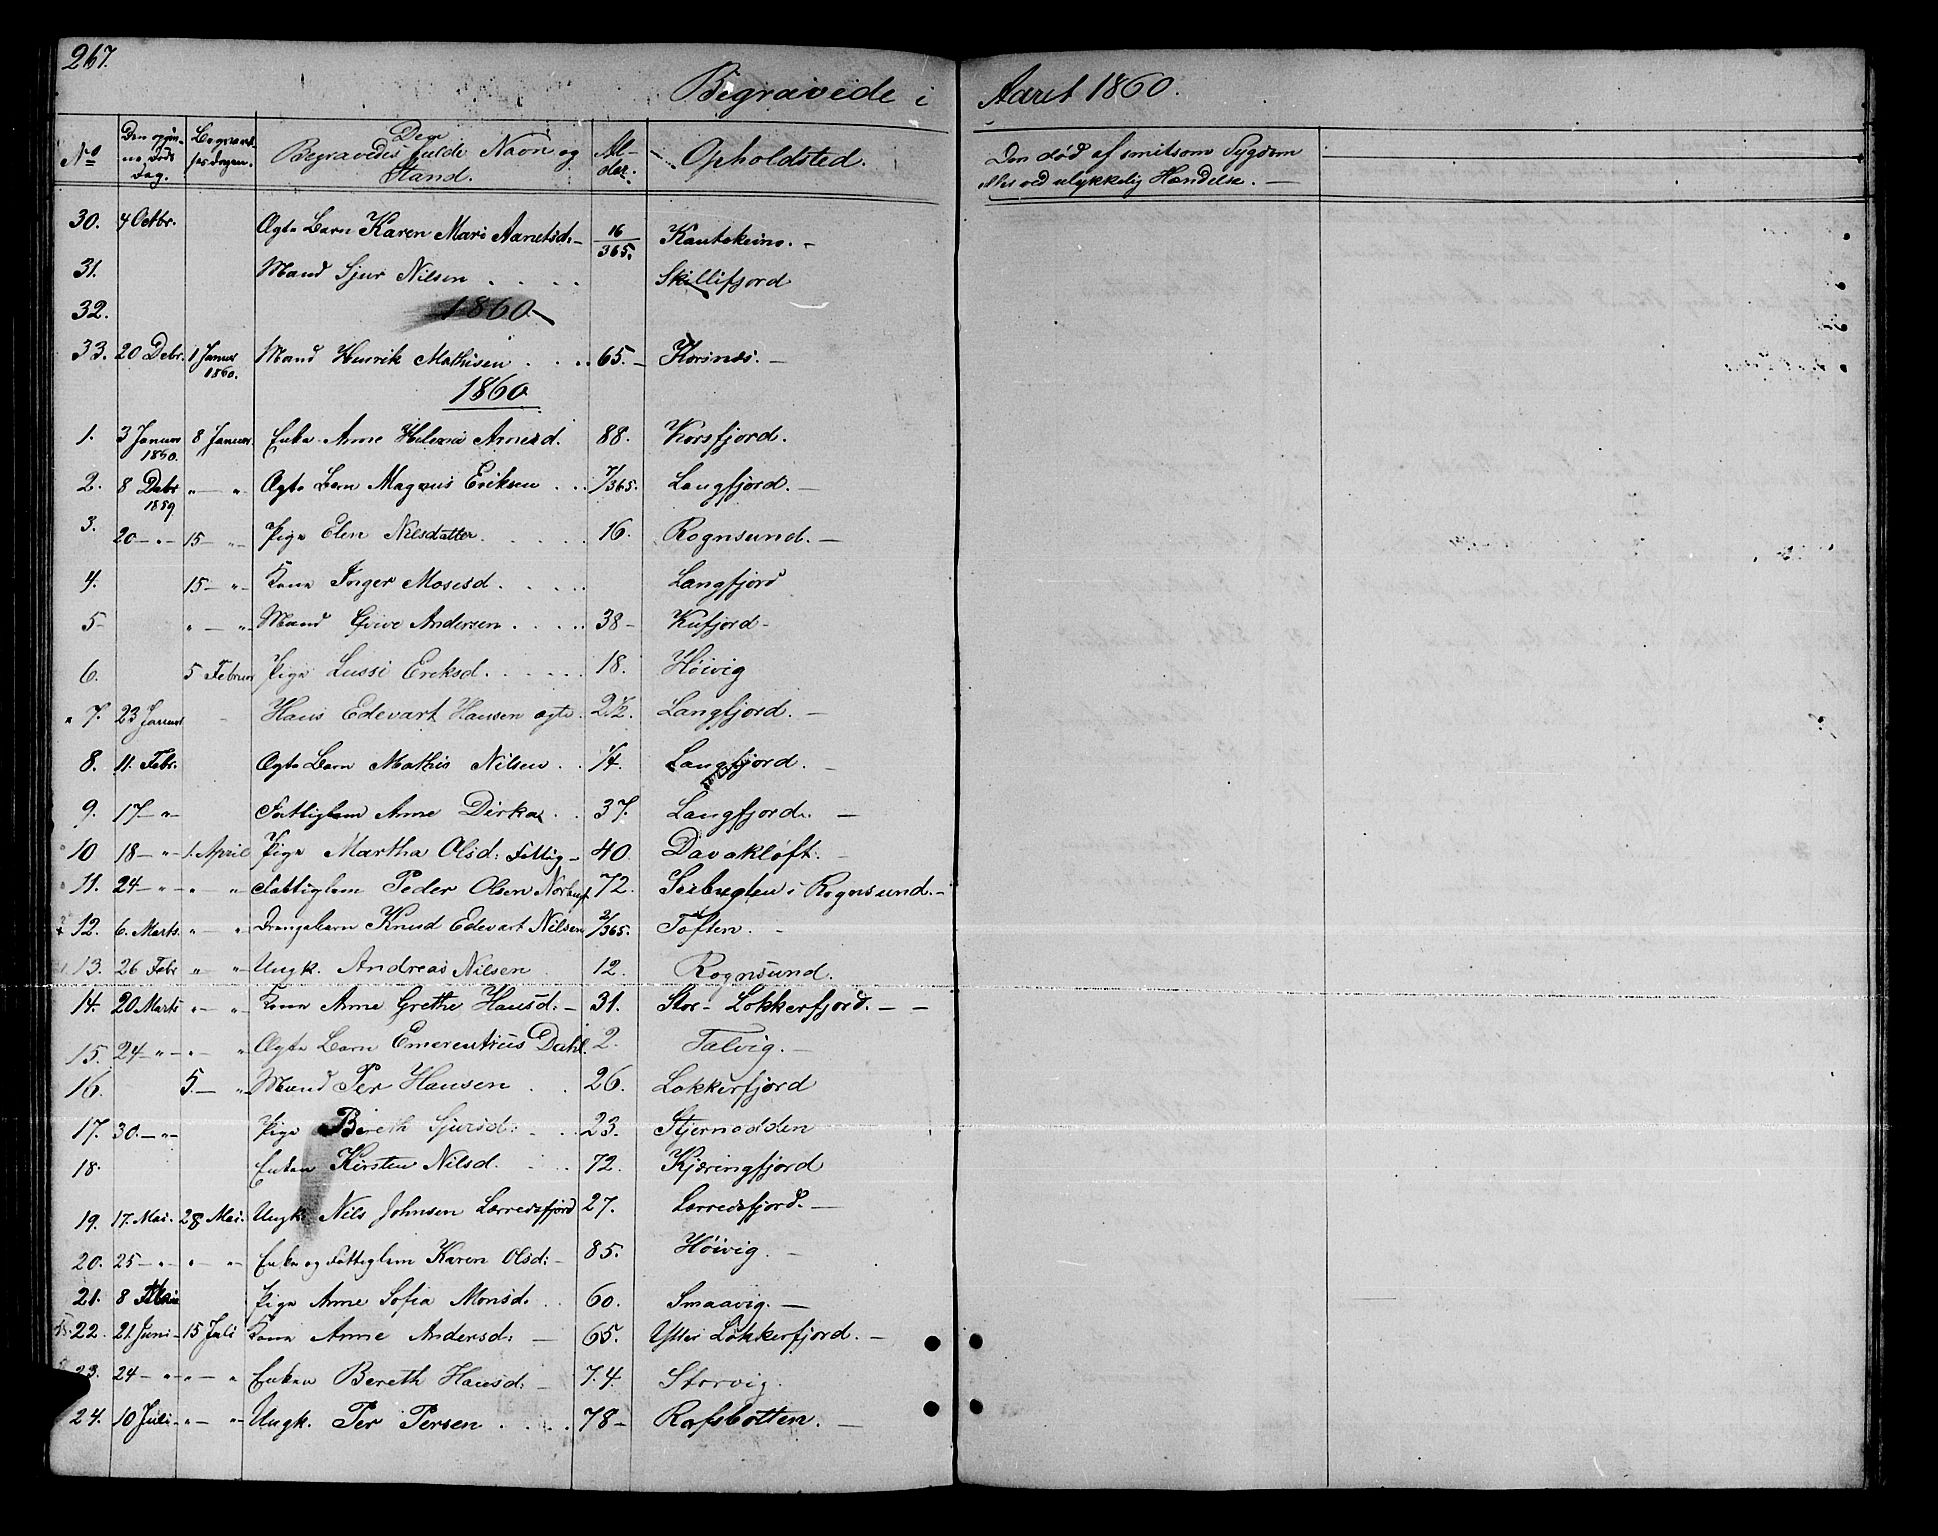 267.
Begravede i Aaret 1860.
No Den opgivne Døds Dag. Begravelsesdagen. Den Begravedes fulde Navn og Stand. Alder. Opholdsted. Den død af smitsom Sygdom eller ved ulykkelig Hændelse. —
30. 4 Octbr. Ægte Barn Karen Mari Aanetsd: — 16/365. Kautokeino. —
31. Mand Sjur Nilsen . . . . Skillifjord
32. 1860 —
33. 20 Debr. 1 Januar 1860. Mand Henrik Mathisen . . . 65. — Korsnes. —
1860
1. 3 Januar 1860. 8 Januar. Enke Anne Helene Arnesd. 88. Korsfjord.
2. 8 Debr 1859 " — " Ægte Barn Magnus Eriksen . . . 7/365. Langfjord. —
3. 20 — " — 15 — " — Pige Elen Nilsdatter. . . . . . 16. Rognsund. —
4. 15 — " — Kone Inger Mosesd. . . . . Langfjord
5 — " — " — Mand Andersen . . . . . 38 — Kufjord —
6. 5 Februar Pige Lussi Eriksd. . . . . . 18. Høivig
7. 23 Januar Hans Edevart Hansen ægte. 2 1/2. Langfjord. —
8. 11. Febr. Ægte Barn Mathis Nilsen . . 1/4. Langfjord. —
9. 17 — " — Fattiglem Anne Dirka . . 37. Langfjord. —
10 18 — " — 1. April Pige Martha Olsd: Fattig — 40. Davakløft. —
11. 24 — " — " — " Fattiglem Peder Olsen 72. i Rognsund. —
12. 6. Marts. " — " Drengebarn Knud Edevart Nilsen 2/365. Toften. —
13. 26 Febr " — " Ungk. Andreas Nilsen 12. Rognsund.
14. 20 Marts " — " Kone Anne Grethe Hansd: — 31. Stor - Lokkerfjord. — —
15. 24 — " — " — " Ægte Barn Emerentius Dahl. 2. Talvig. —
16. 5. — " — Mand Per Hansen . . 26. Lokkerfjord
17. 30. — " — Pige Bereth Sjursd: . . . 23. Stjernodden
18. Enken Kirsten Nilsd. . . . 72. Kjæringfjord
19. 17. Mai. 28 Mai. Ungk. Nils Johnsen Lærredsfjord 27. Lærredsfjord. —
20. 25 — " — " — " — Enke og Fattiglem Karen Olsd: — 85. Høivig. —
21. 8 Mai Pige Anne Sofia Monsd: . . 60. Smaavig. —
22. 21. Juni — 15 Juli Kone Anne Andersd: — 65. Ytter Lokkerfjord. —
23. 24 — " — " — " Enken Bereth Hansd: — 74. Storvig.
24. 10 Juli — " — " — Ungk. Per Persen . . . . 78 — Rafsbotten. —